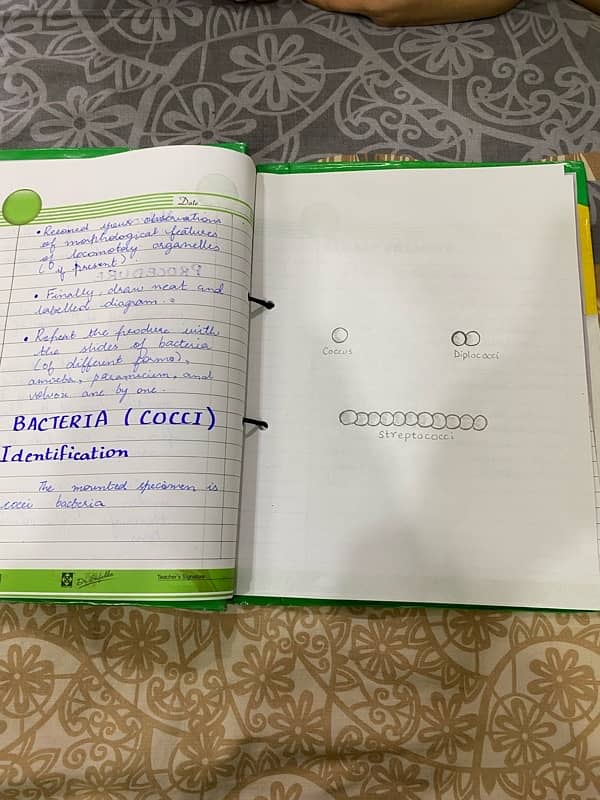 Date
• Record your observations
of morphological features
of locomotory organelles
(if present)
PROCEDURE
• Finally, draw neat and
labelled diagram.
• Repeat the produre with
the slides of bacteria
(of different forms),
amoeba, paramicium, and
volvox one by one.
BACTERIA (COCCI)
Identification
The mounted specimen is
cocci bacteria
Teacher's Signature
Coccus
Diplococci
Streptococci